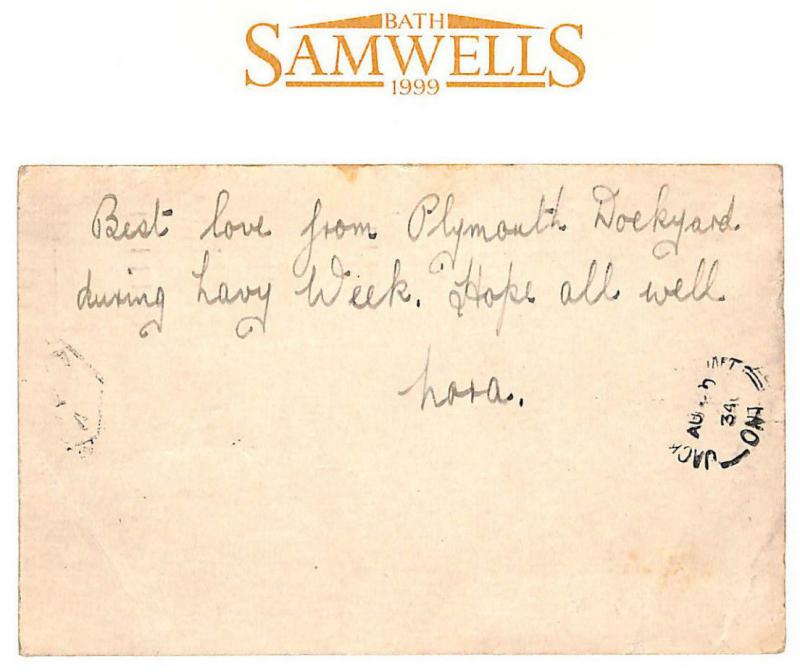 BATH
SAMWELLS
1999
Best love from Plymouth Dockyard
during Navy Week. Hope all well
Nora.
AU
34
ONT